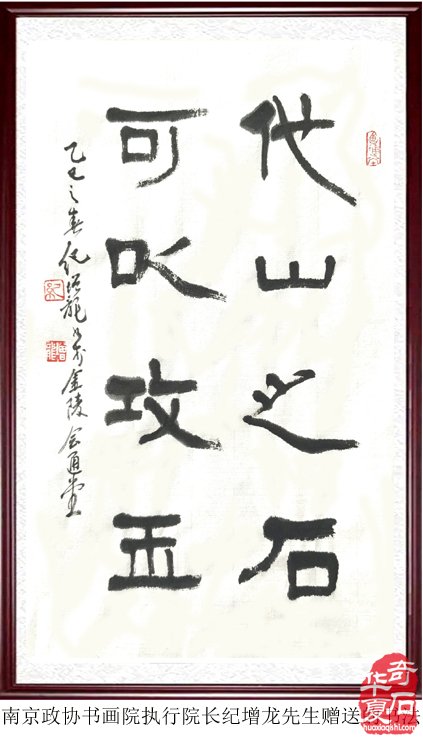 他山之石
可以攻玉
乙巳之春纪增龍书于金陵会通堂
紀
南京政协书画院执行院长纪增龙先生赠送书法
华夏奇石
huaxiaqishi.com